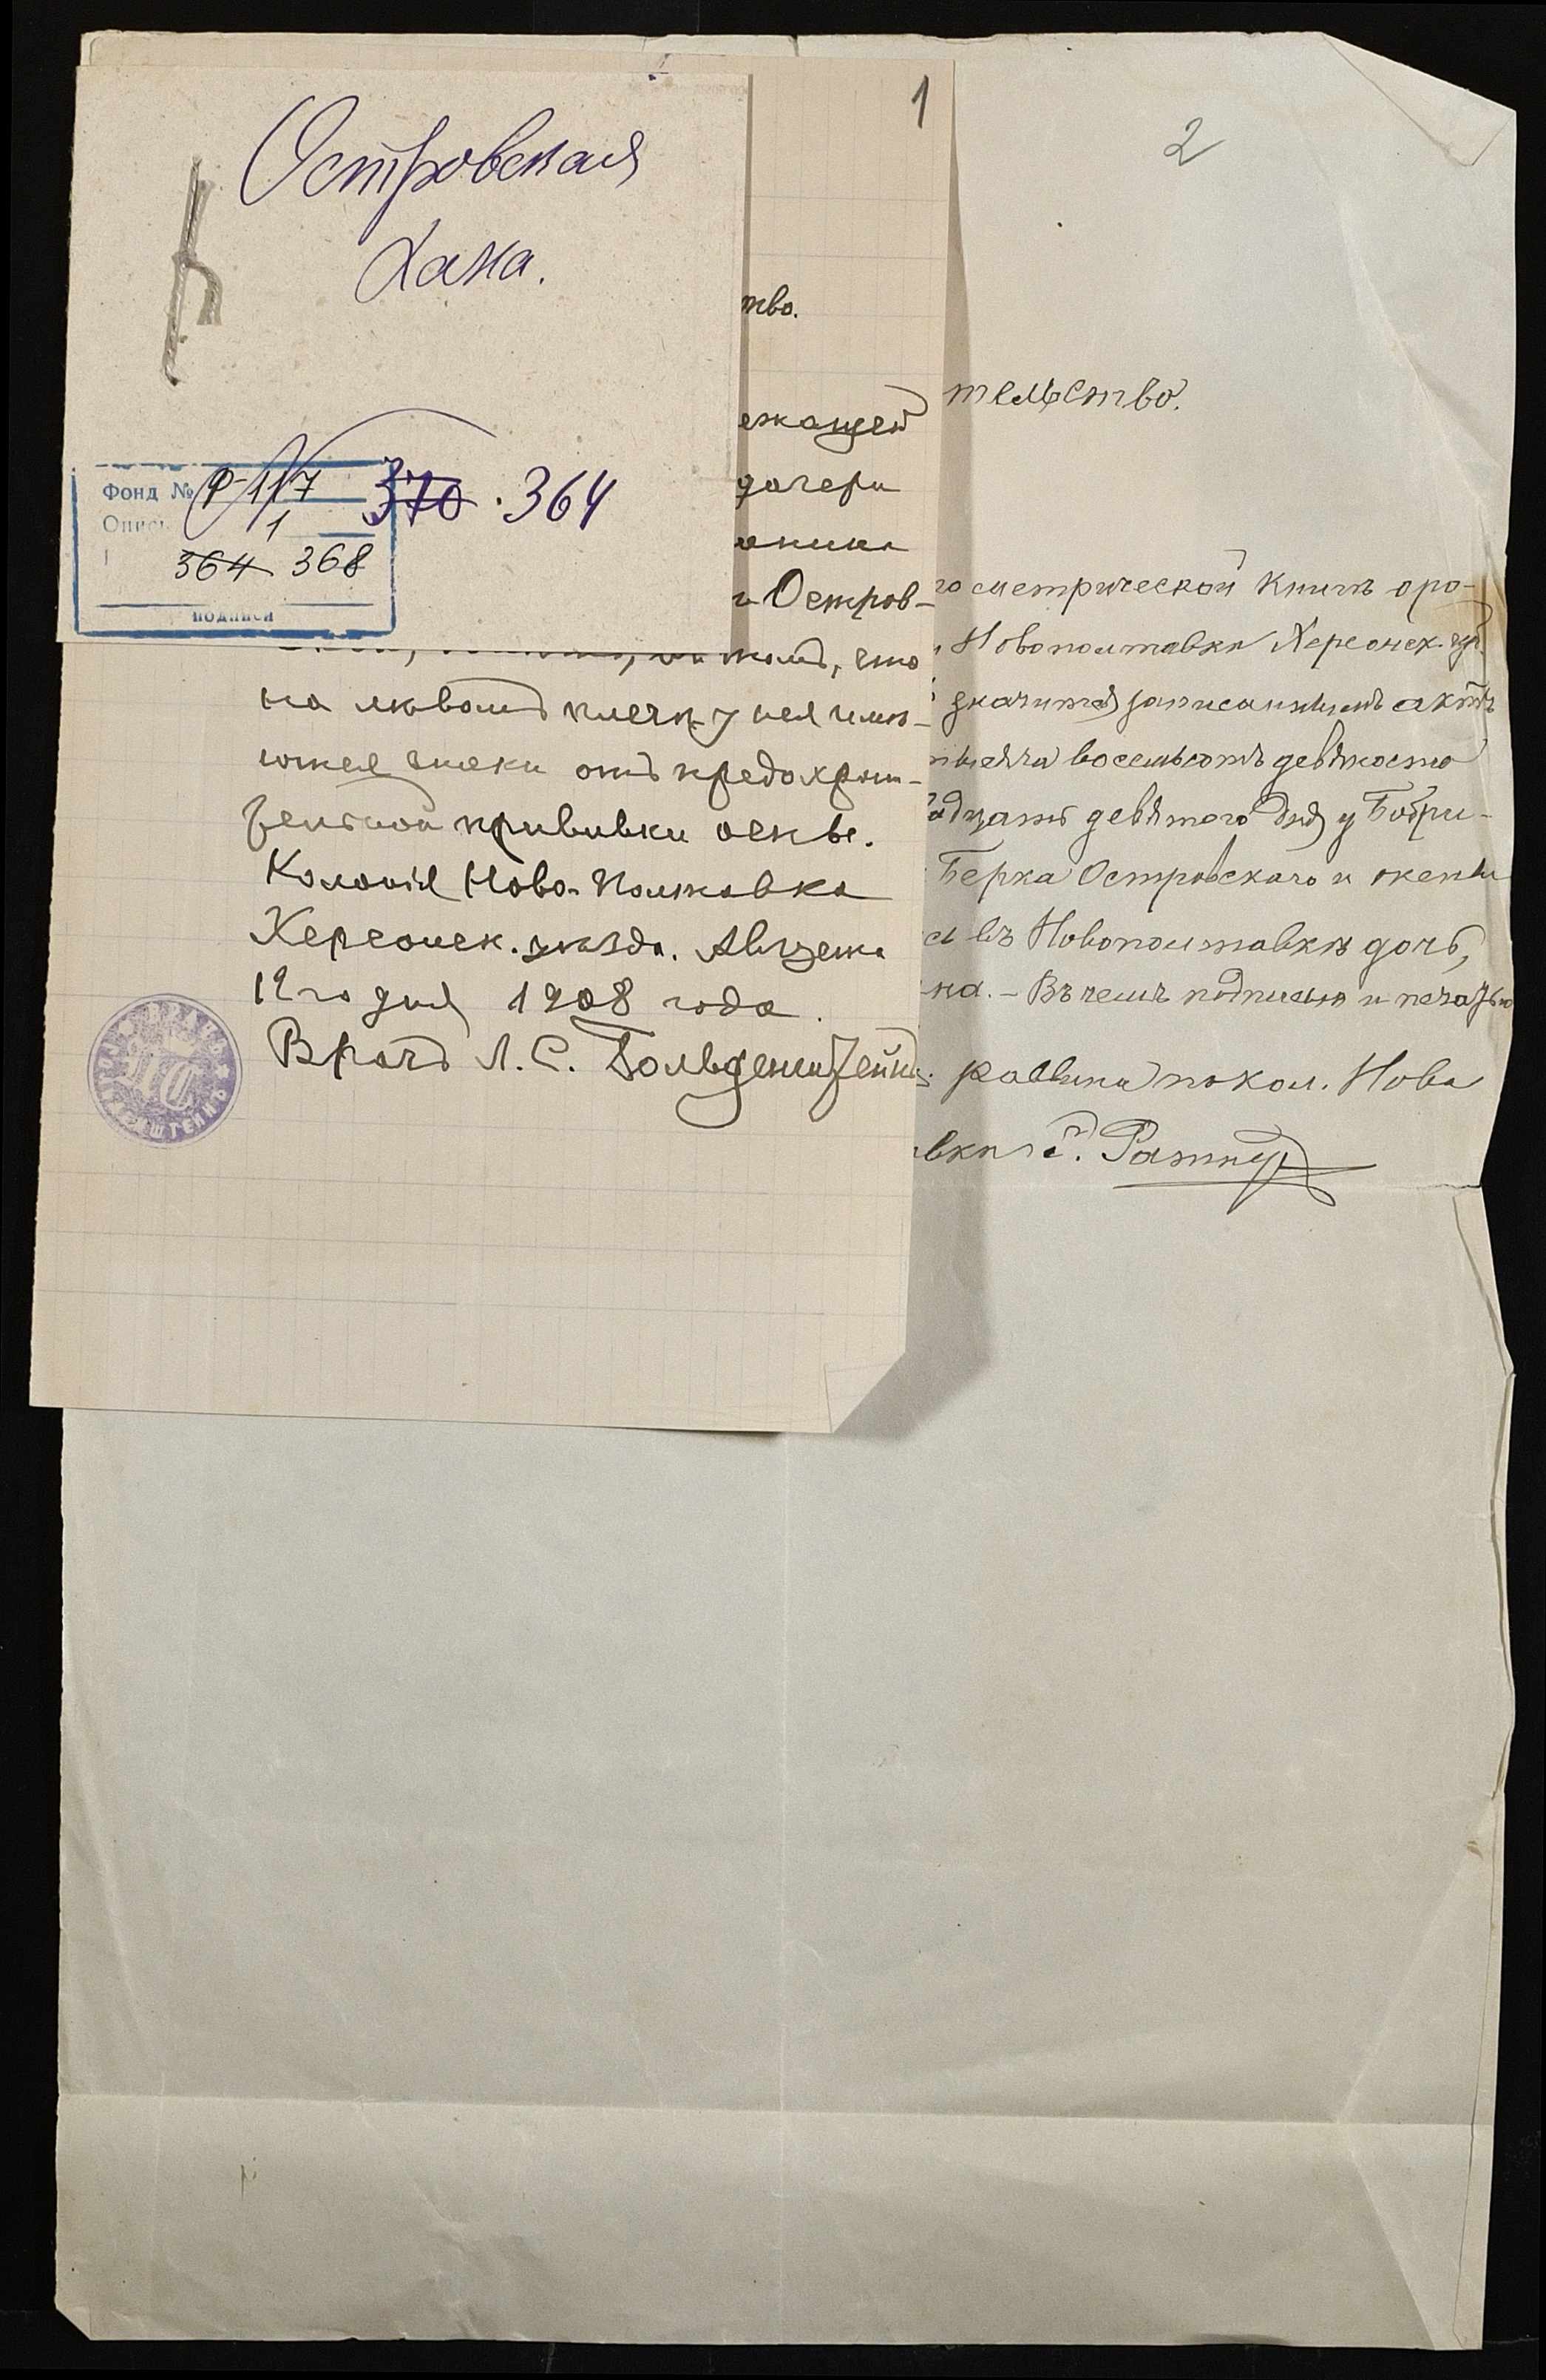 Островская
Хана.
Фонд № Ф-117
Опись 1
370 . 364
364 368
подписи
1
тво.
ежащей
дочери
и Остров-
томъ, что
на лѣвомъ плечѣ у нея имѣ-
ются знаки отъ предохрани-
тельной прививки оспы.
Колонія Ново-Полтавка
Херсонск. уѣзда. Августа
12го дня 1908 года.
Врачъ Л. С. Гольденштейнъ
2
тельство.
метрической книгѣ о ро-
Новополтавки Херсонск. гу.
значится записаннымъ актъ
тысяча восемьсотъ девяносто
адцать девятого дня у Бобри-
Берка Островскаго и жены
въ Новополтавкѣ дочь,
на. - Въ чемъ подписью и печатью
раввина по кол. Ново
вки Ратнер